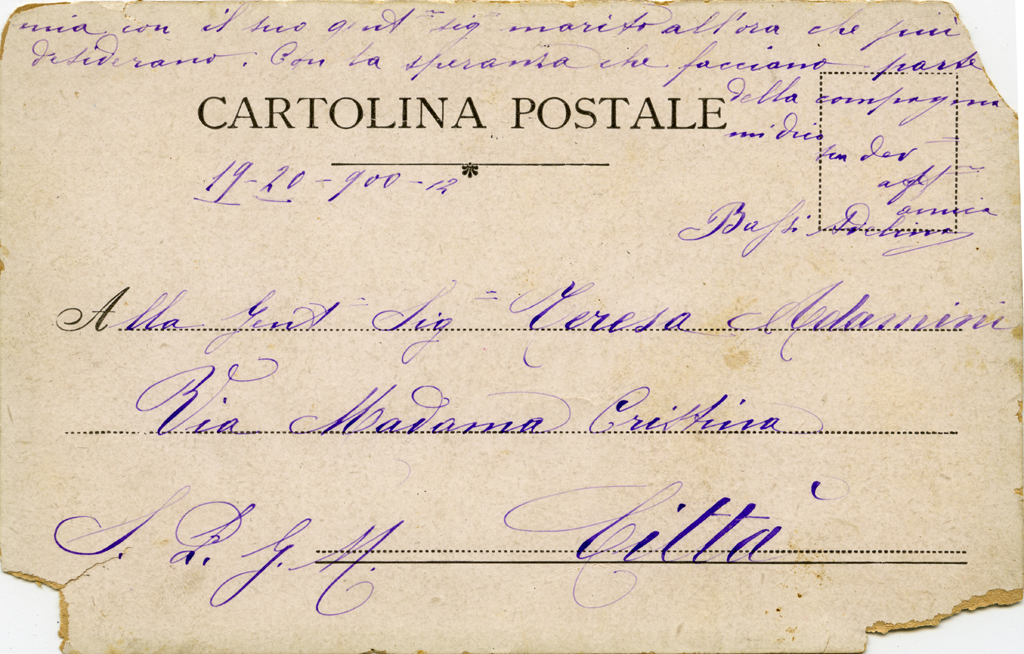 mia con il suo gent sig marito all'ora che più
desiderano. Con la speranza che facciano parte
della compagnia
mi dico
sua dev
aff
amica
Bassi Adelina
CARTOLINA POSTALE
19-20-900-12
Alla Gent Sig Teresa Adamini
Via Madama Cristina
S. P. G. M. Città